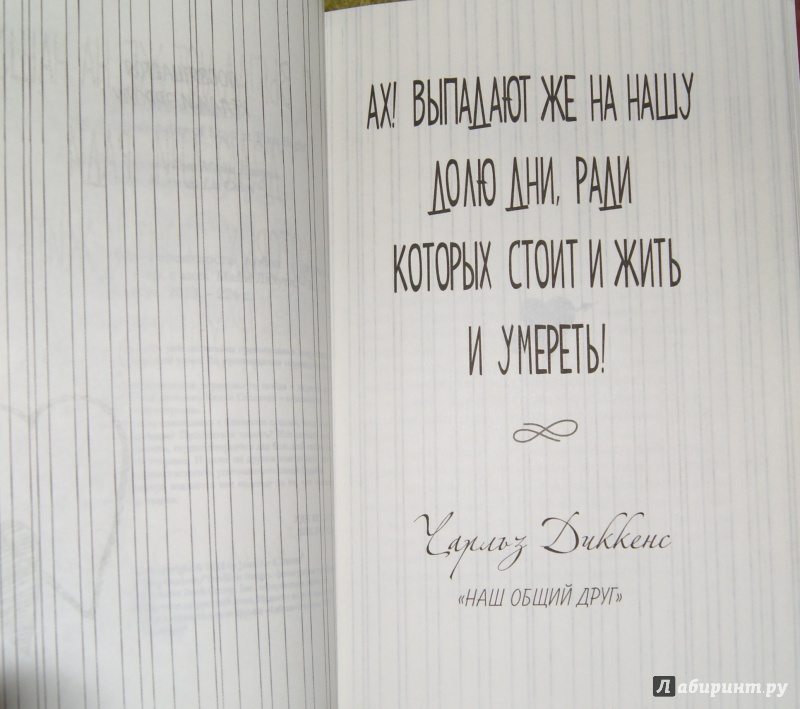 АХ! ВЫПАДАЮТ ЖЕ НА НАШУ
ДОЛЮ ДНИ, РАДИ
КОТОРЫХ СТОИТ И ЖИТЬ
И УМЕРЕТЬ!
Чарльз Диккенс
«НАШ ОБЩИЙ ДРУГ»
Лабиринт.ру